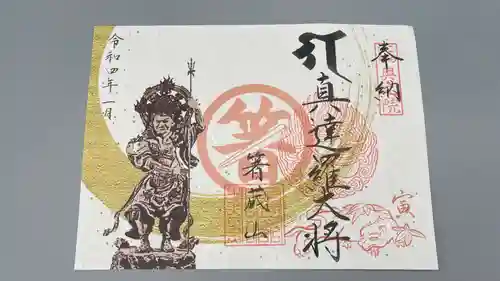 奉納
真達羅大将
箸蔵山
令和四年一月
寅